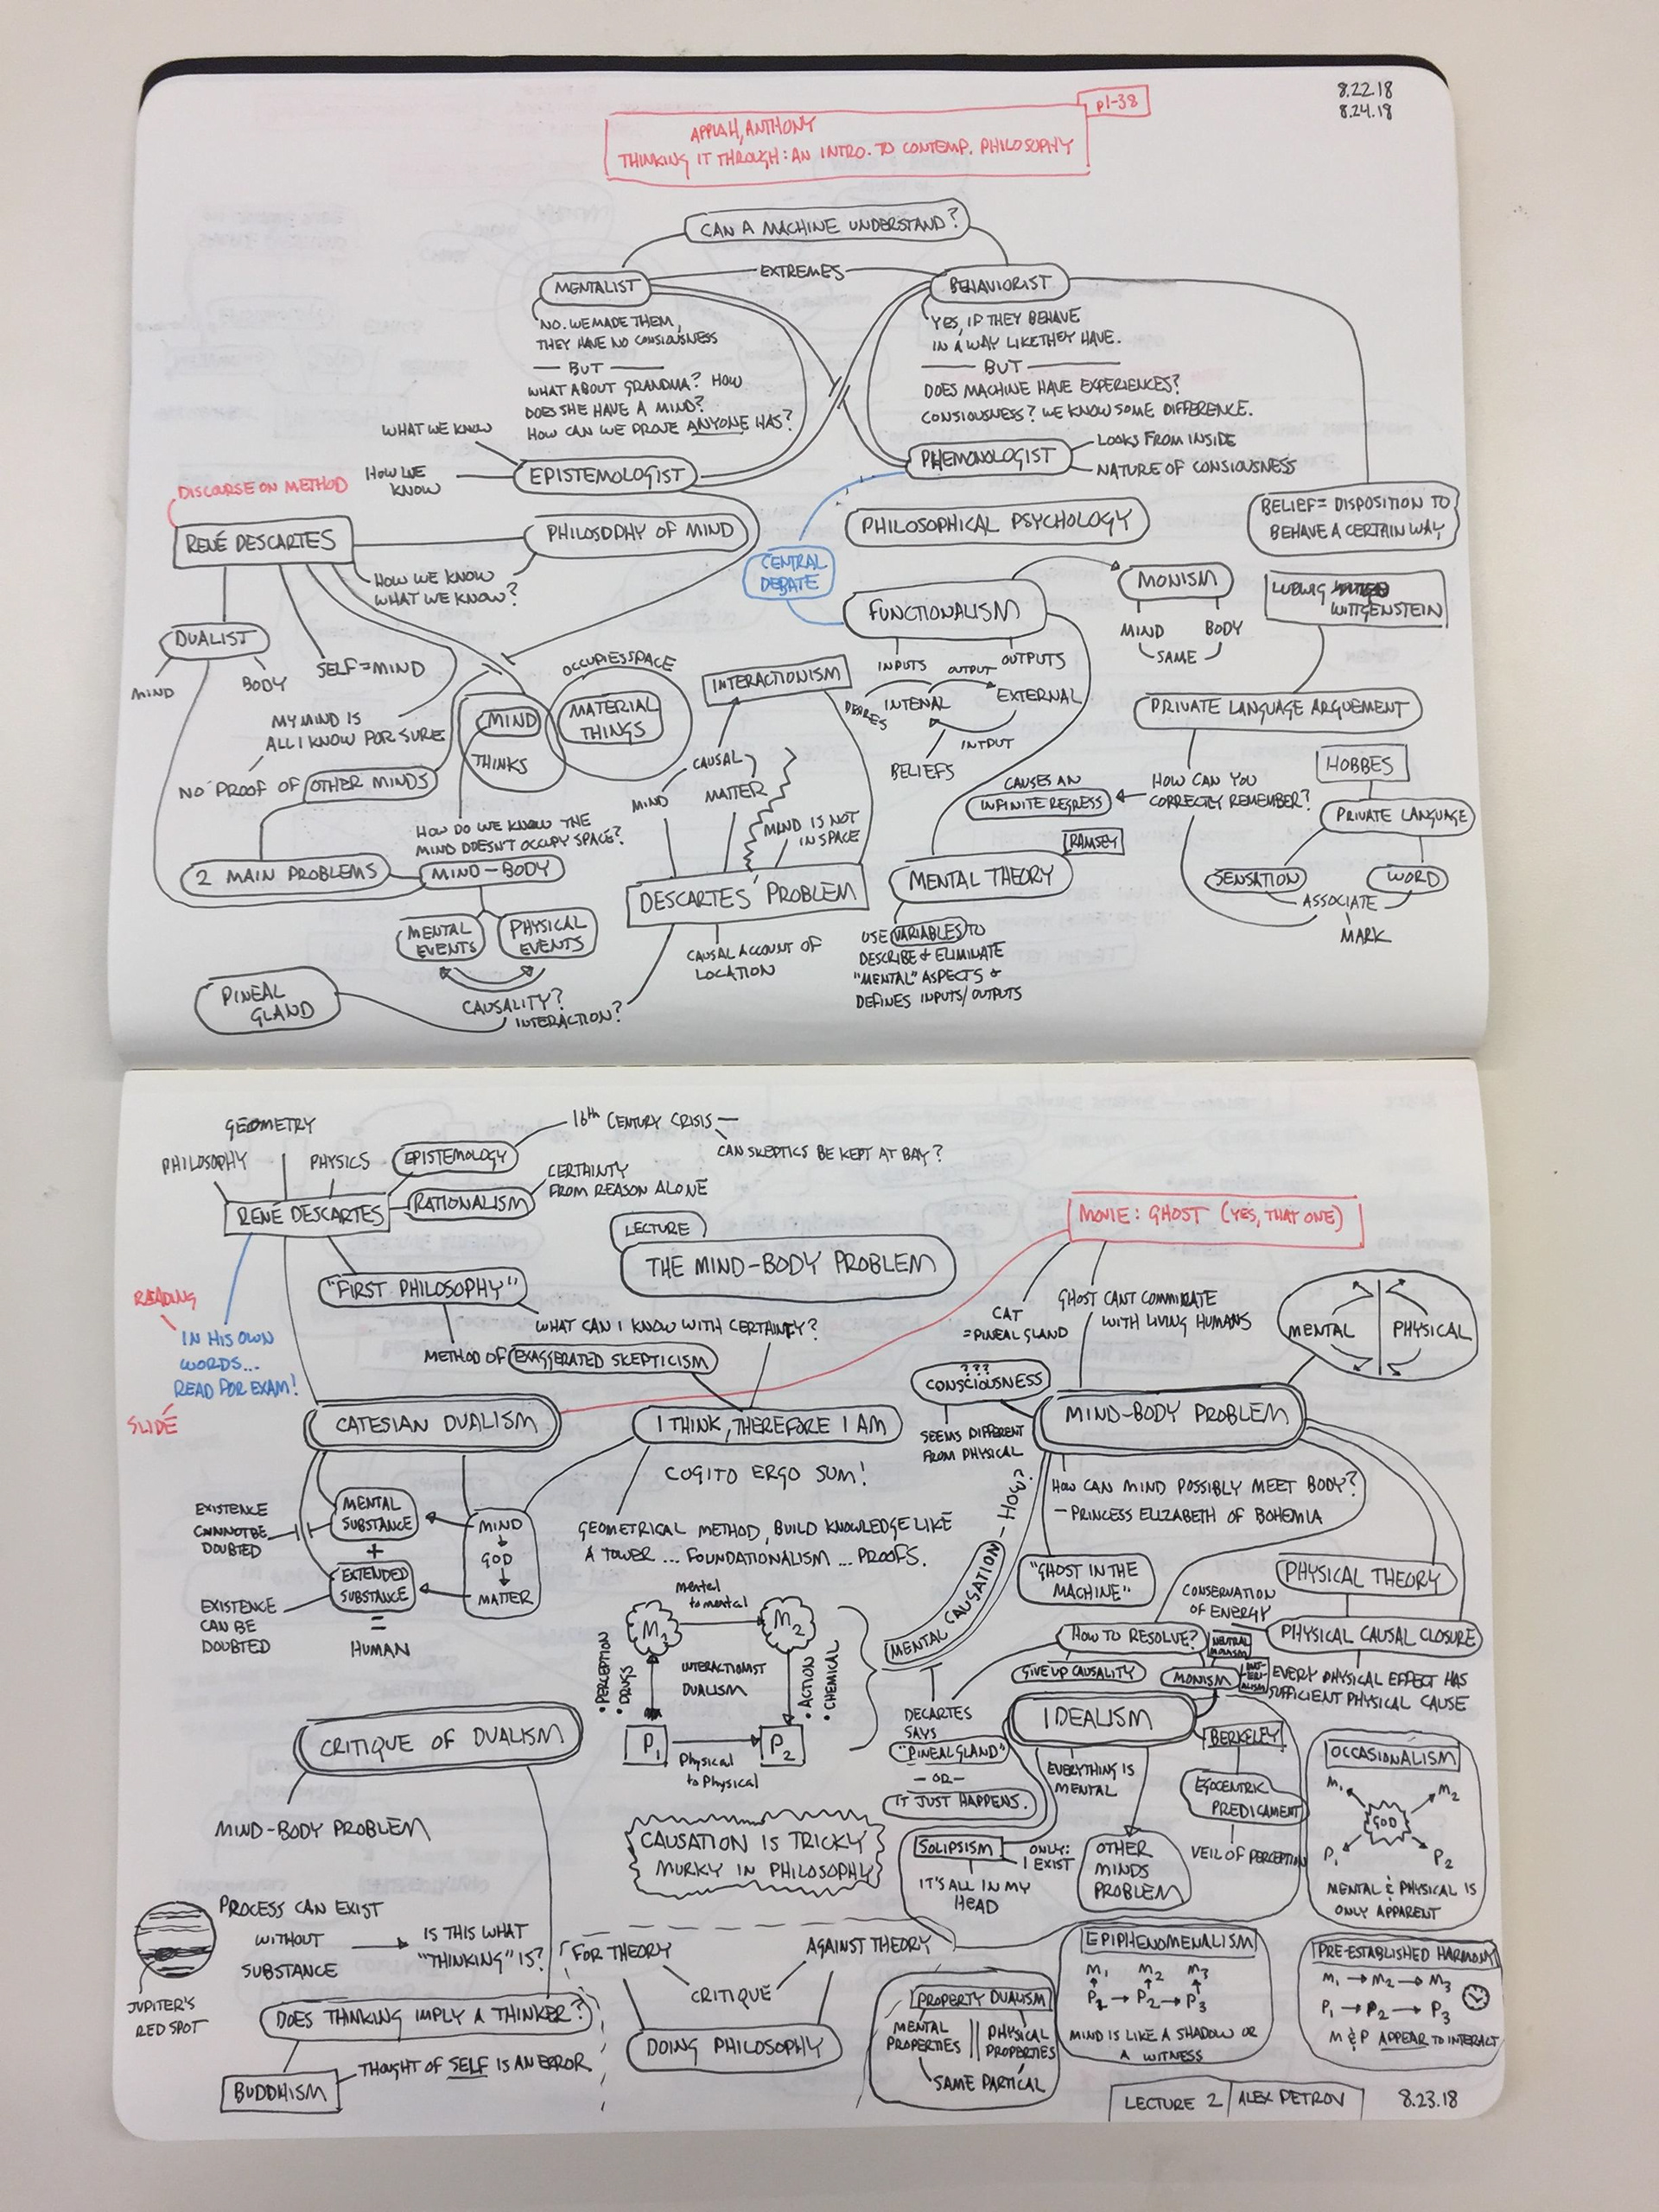 8.22.18
8.24.18
p1-38
APPIAH, ANTHONY
THINKING IT THROUGH: AN INTRO. TO CONTEMP. PHILOSOPHY
CAN A MACHINE UNDERSTAND?
EXTREMES
MENTALIST
BEHAVIORIST
NO. WE MADE THEM,
THEY HAVE NO CONSIOUSNESS
— BUT —
WHAT ABOUT GRANDMA? HOW
DOES SHE HAVE A MIND?
HOW CAN WE PROVE ANYONE HAS?
YES, IF THEY BEHAVE
IN A WAY LIKE THEY HAVE.
— BUT —
DOES MACHINE HAVE EXPERIENCES?
CONSIOUSNESS? WE KNOW SOME DIFFERENCE.
WHAT WE KNOW
HOW WE
KNOW
EPISTEMOLOGIST
PHEMONOLOGIST
LOOKS FROM INSIDE
NATURE OF CONSIOUSNESS
DISCOURSE ON METHOD
RENÉ DESCARTES
PHILOSOPHY OF MIND
HOW WE KNOW
WHAT WE KNOW?
PHILOSOPHICAL PSYCHOLOGY
BELIEF = DISPOSITION TO
BEHAVE A CERTAIN WAY
CENTRAL
DEBATE
FUNCTIONALISM
MONISM
MIND BODY
SAME
LUDWIG
WITTGENSTEIN
DUALIST
MIND
BODY
SELF = MIND
MY MIND IS
ALL I KNOW FOR SURE
NO PROOF OF OTHER MINDS
OCCUPIES SPACE
MIND
THINKS
MATERIAL
THINGS
INTERACTIONISM
CAUSAL
MIND
MATTER
MIND IS NOT
IN SPACE
INPUTS
OUTPUT
OUTPUTS
INTENAL
EXTERNAL
INTPUT
BELIEFS
PRIVATE LANGUAGE ARGUEMENT
HOW CAN YOU
CORRECTLY REMEMBER?
CAUSES AN
INFINITE REGRESS
HOBBES
PRIVATE LANGUAGE
SENSATION
WORD
ASSOCIATE
MARK
HOW DO WE KNOW THE
MIND DOESN'T OCCUPY SPACE?
2 MAIN PROBLEMS
MIND-BODY
MENTAL
EVENTS
PHYSICAL
EVENTS
CAUSALITY?
INTERACTION?
PINEAL
GLAND
DESCARTES' PROBLEM
CAUSAL ACCOUNT OF
LOCATION
RAMSEY
MENTAL THEORY
USE VARIABLES TO
DESCRIBE & ELIMINATE
"MENTAL" ASPECTS &
DEFINES INPUTS/OUTPUTS
GEOMETRY
PHILOSOPHY
PHYSICS
RENÉ DESCARTES
EPISTEMOLOGY
16th CENTURY CRISIS —
CAN SKEPTICS BE KEPT AT BAY?
RATIONALISM
CERTAINTY
FROM REASON ALONE
LECTURE
THE MIND-BODY PROBLEM
MOVIE: GHOST (YES, THAT ONE)
CAT
= PINEAL GLAND
GHOST CANT COMMIRATE
WITH LIVING HUMANS
MENTAL
PHYSICAL
READING
IN HIS OWN
WORDS...
READ FOR EXAM!
SLIDE
"FIRST PHILOSOPHY"
WHAT CAN I KNOW WITH CERTAINTY?
METHOD OF EXAGGERATED SKEPTICISM
CATESIAN DUALISM
I THINK, THEREFORE I AM
COGITO ERGO SUM!
???
CONSCIOUSNESS
SEEMS DIFFERENT
FROM PHYSICAL
MIND-BODY PROBLEM
HOW CAN MIND POSSIBLY MEET BODY?
— PRINCESS ELIZABETH OF BOHEMIA
EXISTENCE
CANNOT BE
DOUBTED
MENTAL
SUBSTANCE
+
EXTENDED
SUBSTANCE
=
HUMAN
EXISTENCE
CAN BE
DOUBTED
MIND
GOD
MATTER
GEOMETRICAL METHOD, BUILD KNOWLEDGE LIKE
A TOWER ... FOUNDATIONALISM ... PROOFS.
mental
to mental
M2
• PERCEPTION
• DRUGS
INTERACTIONIST
DUALISM
• ACTION
• CHEMICAL
P1
P2
Physical
to Physical
MENTAL CAUSATION — HOW?
"GHOST IN THE
MACHINE"
PHYSICAL THEORY
CONSERVATION
OF ENERGY
PHYSICAL CAUSAL CLOSURE
EVERY PHYSICAL EFFECT HAS
SUFFICIENT PHYSICAL CAUSE
HOW TO RESOLVE?
GIVE UP CAUSALITY
MONISM
NEUTRAL
MONISM
DECARTES
SAYS
"PINEAL GLAND"
— OR —
IT JUST HAPPENS.
IDEALISM
EVERYTHING IS
MENTAL
BERKELEY
EGOCENTRIC
PREDICAMENT
VEIL OF PERCEPTION
OCCASIONALISM
M1
M2
GOD
P1
P2
MENTAL & PHYSICAL IS
ONLY APPARENT
CRITIQUE OF DUALISM
MIND-BODY PROBLEM
CAUSATION IS TRICKY
MURKY IN PHILOSOPHY
SOLIPSISM
ONLY:
I EXIST
IT'S ALL IN MY
HEAD
OTHER
MINDS
PROBLEM
PROCESS CAN EXIST
WITHOUT
SUBSTANCE
IS THIS WHAT
"THINKING" IS?
JUPITER'S
RED SPOT
DOES THINKING IMPLY A THINKER?
BUDDHISM
THOUGHT OF SELF IS AN ERROR
FOR THEORY
AGAINST THEORY
CRITIQUE
DOING PHILOSOPHY
PROPERTY DUALISM
MENTAL
PROPERTIES
PHYSICAL
PROPERTIES
SAME PARTICAL
EPIPHENOMENALISM
M1 M2 M3
P2 → P2 → P3
MIND IS LIKE A SHADOW OR
A WITNESS
PRE-ESTABLISHED HARMONY
M1 → M2 → M3
P1 → P2 → P3
M & P APPEAR TO INTERACT
LECTURE 2
ALEX PETROV
8.23.18